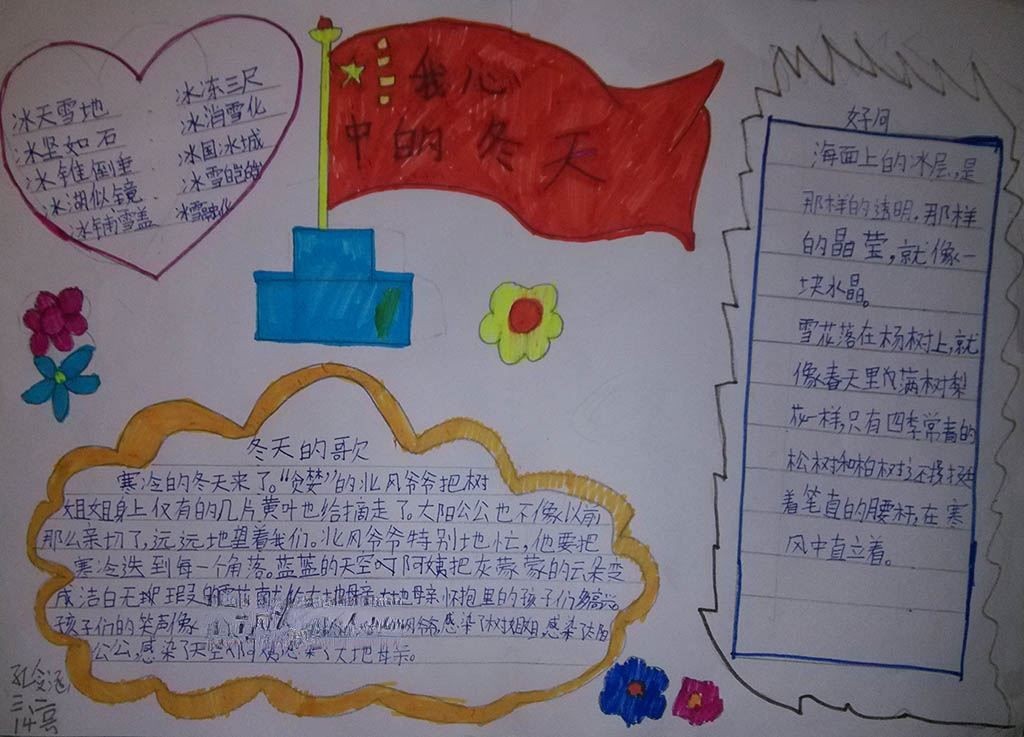 我心
中的冬天
冰天雪地
冰坚如石
冰锥倒垂
冰湖似镜
冰铺雪盖
冰冻三尺
冰消雪化
冰国冰城
冰雪皑皑
冰雪融化
好句
海面上的冰层,是
那样的透明,那样
的晶莹,就像一
块水晶。
雪花落在杨树上,就
像春天里满树梨
花一样,只有四季常青的
松树和柏树还挺
着笔直的腰杆,在寒
风中直立着。
冬天的歌
寒冷的冬天来了。“贪婪”的北风爷爷把树
姐姐身上仅有的几片黄叶也给摘走了。太阳公公也不像以前
那么亲切了,远远地望着我们。北风爷爷特别地忙,他要把
寒冷送到每一个角落。蓝蓝的天空阿姨把灰蒙蒙的云朵变
成洁白无瑕的大地母亲怀抱里的孩子们
孩子们的笑声像感染了树姐姐,感染了太阳
公公,感染了天空阿姨,感染了大地母亲。
三、二
14号